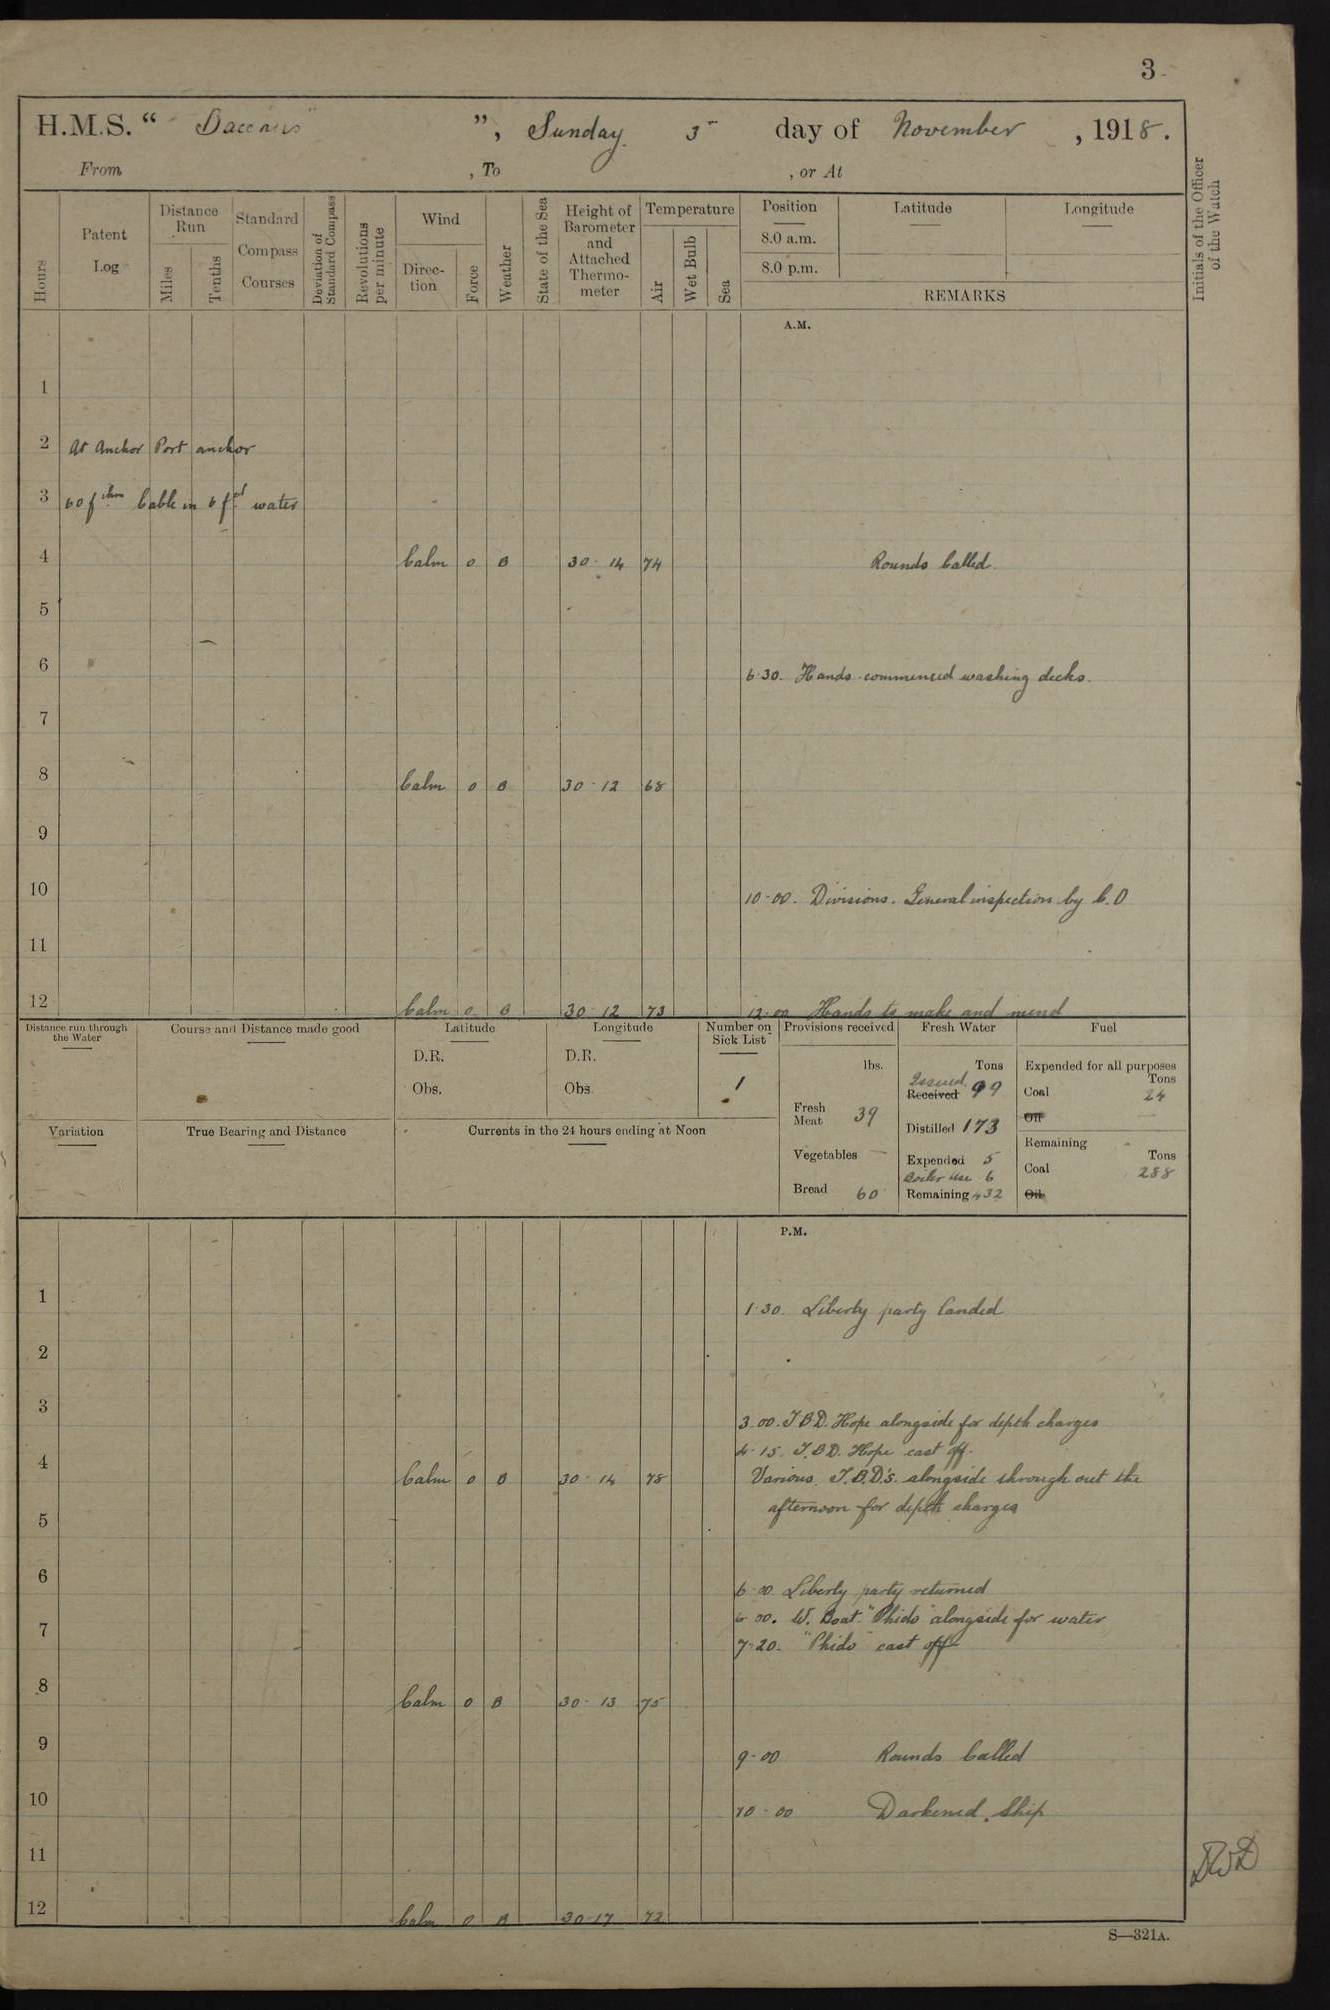 3
H.M.S. “ ”, Sunday 3rd day of November, 1918.
From , To , or At
Hours
Patent Log
Distance Run
Miles
Tenths
Standard Compass Courses
Deviation of Standard Compass
Revolutions per minute
Wind
Direction
Force
Weather
State of the Sea
Height of Barometer and Attached Thermometer
Temperature
Air
Wet Bulb
Sea
Position
8.0 a.m.
8.0 p.m.
Latitude
Longitude
REMARKS
Initials of the Officer of the Watch
A.M.
1
2 At Anchor Port anchor
3 60 fthm Cable in 6 fm water
4 Calm 0 B 30-14 74 Rounds Called.
5
6 6.30. Hands commenced washing decks.
7
8 Calm 0 B 30-12 68
9
10 10-00. Divisions. General inspection by C.O
11
12 Calm 0 B 30-12 73 12.00 Hands to make and mend
Distance run through the Water
Course and Distance made good
Latitude
D.R.
Obs.
Longitude
D.R.
Obs.
Number on Sick List
1
Variation
True Bearing and Distance
Currents in the 24 hours ending at Noon
Provisions received
lbs.
Fresh Meat 39
Vegetables —
Bread 60
Fresh Water
Tons
Issued
Received 99
Distilled 173
Expended 5
Boiler Use 6
Remaining 432
Fuel
Expended for all purposes
Tons
Coal 24
Oil
Remaining
Tons
Coal 288
Oil
P.M.
1 1.30. Liberty party landed
2
3 3.00. T.B.D. Hope alongside for depth charges
4.15. T.B.D. Hope cast off.
4 Calm 0 B 30-14 78 Various T.B.D's. alongside through out the
afternoon for depth charges
5
6 6-00 Liberty party returned
6-00. W. Boat "Phido" alongside for water
7 7-20. "Phido" cast off
8 Calm 0 B 30-13 75
9 9-00 Rounds Called
10 10-00 Darkened Ship
11
12 Calm 0 B 30-17 72
S—321A.